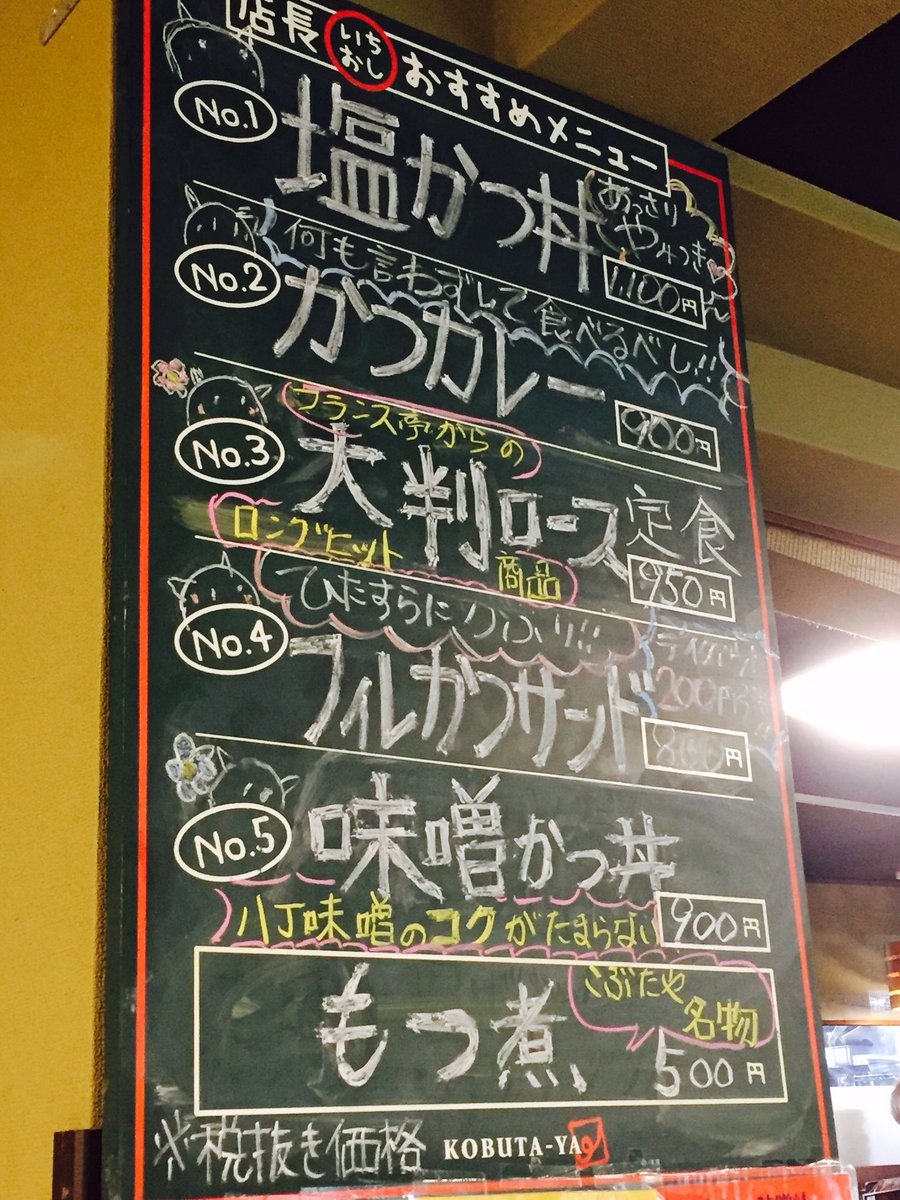 店長 いち おし おすすめメニュー
No.1 塩かつ丼
あっさり
1,100円
何も言わずして食べるべし!!
No.2 かつカレー
900円
フランス亭からの
No.3 大判ロース定食
ロングヒット 商品
950円
ひたすらに
No.4 フィレかつサンド
200円
円
No.5 味噌かつ丼
八丁味噌のコクがたまらない 900円
もつ煮
こぶたや
名物
500円
※税抜き価格 KOBUTA-YA